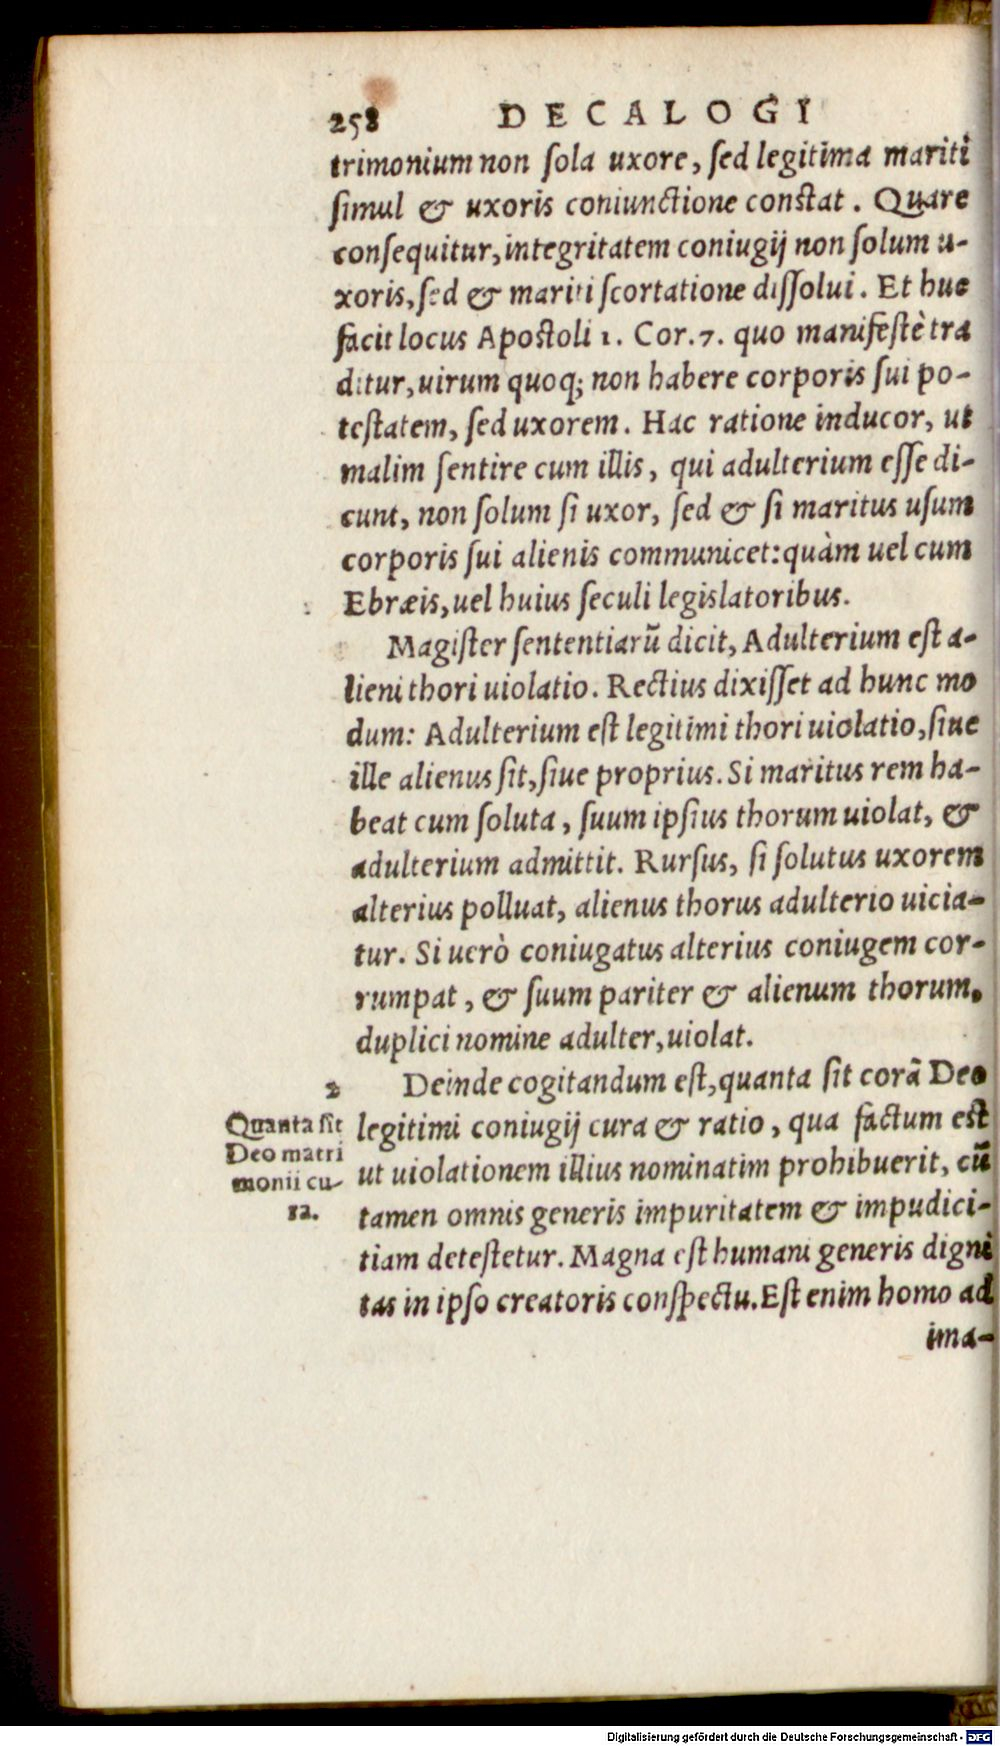 258 DECALOGI
trimonium non ſola uxore, ſed legitima mariti
ſimul & uxoris coniunctione conſtat. Quare
conſequitur, integritatem coniugij non ſolum u-
xoris, ſed & mariti ſcortatione diſſolui. Et huc
facit locus Apoſtoli 1. Cor. 7. quo manifeſtè tra
ditur, uirum quoq; non habere corporis ſui po-
teſtatem, ſed uxorem. Hac ratione inducor, ut
malim ſentire cum illis, qui adulterium eſſe di-
cunt, non ſolum ſi uxor, ſed & ſi maritus uſum
corporis ſui alienis communicet: quàm uel cum
Ebræis, uel huius ſeculi legislatoribus.
Magiſter ſententiarũ dicit, Adulterium eſt a-
lieni thori uiolatio. Rectius dixiſſet ad hunc mo
dum: Adulterium eſt legitimi thori uiolatio, ſiue
ille alienus ſit, ſiue proprius. Si maritus rem ha-
beat cum ſoluta, ſuum ipſius thorum uiolat, &
adulterium admittit. Rurſus, ſi ſolutus uxorem
alterius polluat, alienus thorus adulterio uicia-
tur. Si uerò coniugatus alterius coniugem cor-
rumpat, & ſuum pariter & alienum thorum,
duplici nomine adulter, uiolat.
2
Quanta ſit
Deo matri
monii cu-
ra.
Deinde cogitandum eſt, quanta ſit corã Deo
legitimi coniugij cura & ratio, qua factum eſt
ut uiolationem illius nominatim prohibuerit, cũ
tamen omnis generis impuritatem & impudici-
tiam deteſtetur. Magna eſt humani generis digni
tas in ipſo creatoris conſpectu. Eſt enim homo ad
ima-
Digitalisierung gefördert durch die Deutsche Forschungsgemeinschaft - DFG